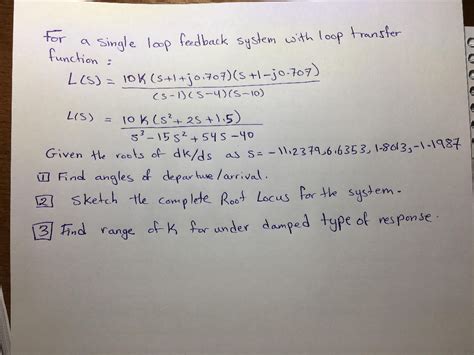 For a single loop feedback system with loop transfer
function :
L(s) = 10K (s+1+j0.707)(s+1-j0.707)
(s-1)(s-4)(s-10)
L(s) = 10 K (s²+2s+1.5)
s³-15s²+54s-40
Given the roots of dK/ds as s= -11.2379, 6.6353, 1.8013, -1.1987
1 Find angles of departure/arrival.
2 Sketch the complete Root Locus for the system.
3 Find range of K for under damped type of response.